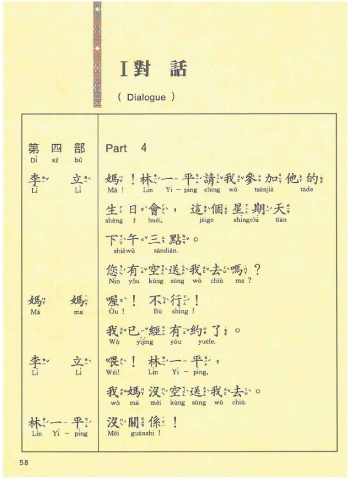 I 對 話
( Dialogue )
第 四 部 Part 4
Dì sz̀ bù
李 立 媽！林一平請我參加他的
Lǐ Lì Mā ! Lín Yī - píng chǐng wǒ tsānjiā tāde
生日會，這個星期天
shēng r̀ huèi, jèige shīngchí tiān
下午三點。
shiàwǔ sāndiǎn.
您有空送我去嗎？
Nín yǒu kùng sùng wǒ chiù ma ?
媽 媽 喔！不行！
Mā ma Ou ! Bù shíng !
我已經有約了。
Wǒ yǐjīng yǒu yuēle.
李 立 喂！林一平，
Lǐ Lì Wèi! Lín Yī - píng,
我媽沒空送我去。
wǒ mā méi kùng sùng wǒ chiù.
林一平 沒關係！
Lín Yī - píng Méi guānshì !
58